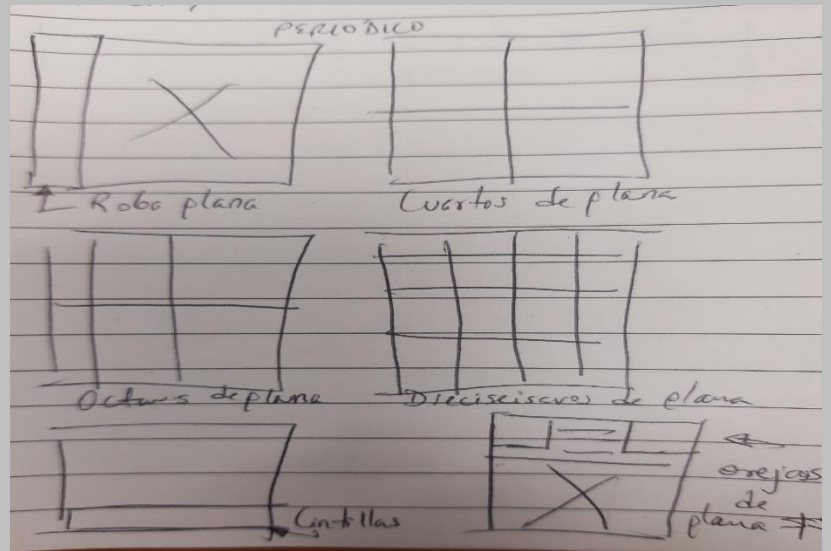 PERIÓDICO
Roba plana
Cuartos de plana
Octavos de plana
Dieciseisavos de plana
Cintillas
orejas
de
plana